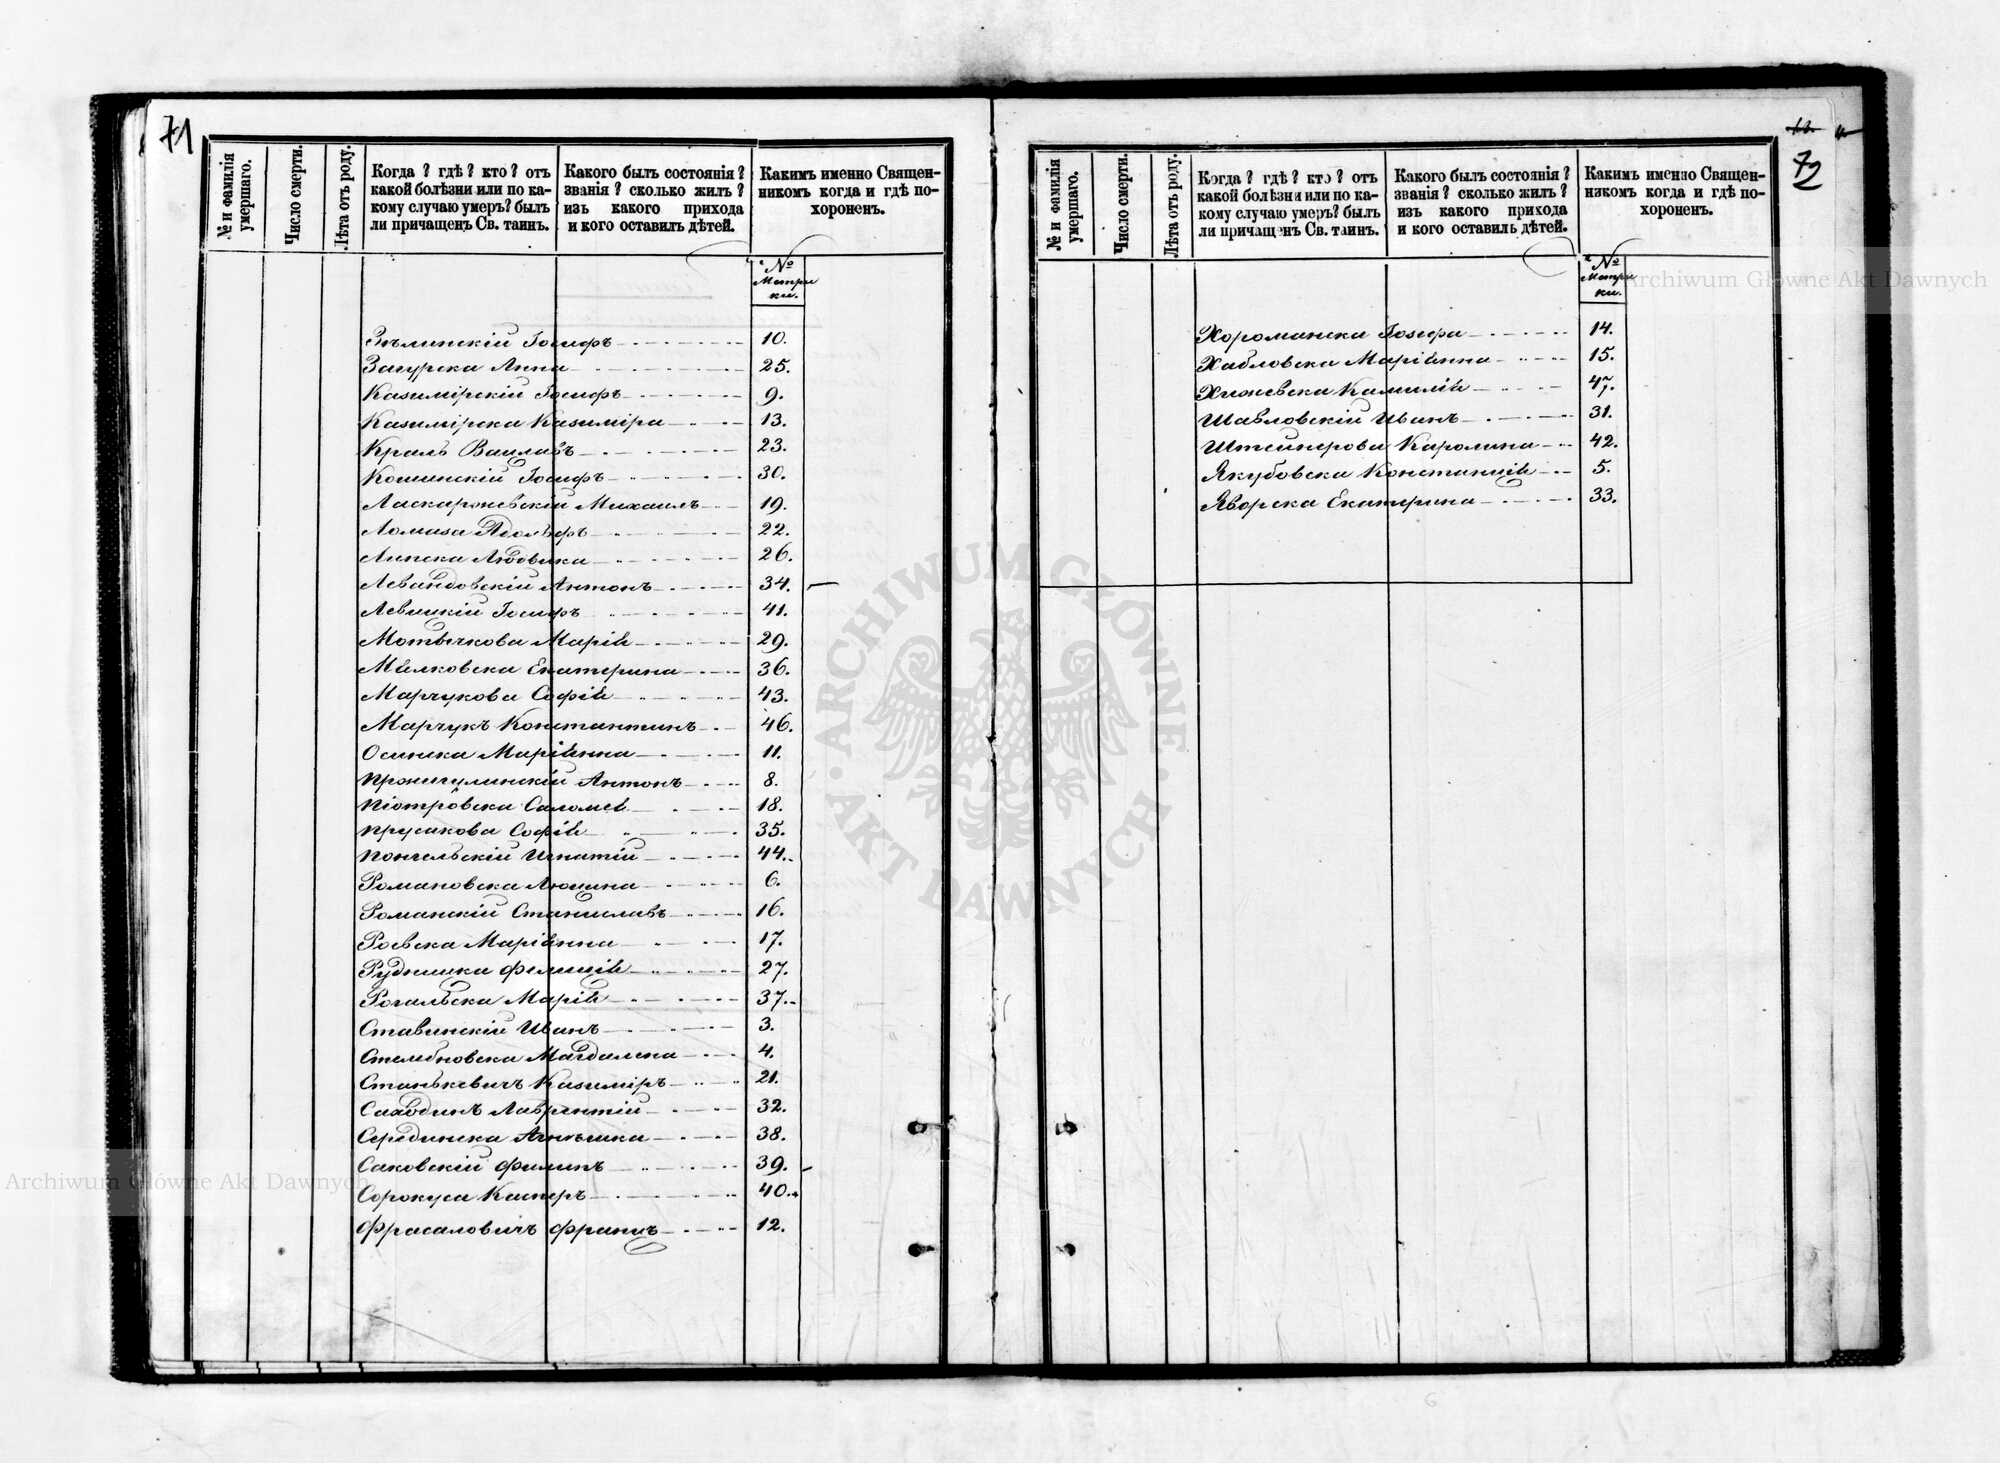 71
№ и фамилія умершаго.
Число смерти.
Лѣта отъ роду.
Когда? гдѣ? кто? отъ какой болѣзни или по какому случаю умеръ? былъ ли причащенъ Св. таинъ.
Какого былъ состоянія? званія? сколько жилъ? изъ какого прихода и кого оставилъ дѣтей.
Какимъ именно Священникомъ когда и гдѣ похороненъ.
№ Метрики.
Зѣлинскій Іосифъ 10.
Загурска Анна 25.
Казимірскій Іосифъ 9.
Казимірска Казиміра 13.
Краль Вацлавъ 23.
Іосифъ 30.
Михаилъ 19.
Ломиза Адольфъ 22.
Липска Людовика 26.
Левандовскій Антонъ 34.
Левицкій Іосифъ 41.
Мотычкова Марія 29.
Малковска Екатерина 36.
Марчукова Софія 43.
Марчукъ Константинъ 46.
Осинска Маріянна 11.
Антонъ 8.
Піотровска Саломея 18.
Прусакова Софія 35.
Понгельскій Игнатій 44.
Романовска Люцина 6.
Романскій Станиславъ 16.
Роевска Маріянна 17.
Рудницка Фелиція 27.
Рогальска Марія 37.
Ставинскій Иванъ 3.
Магдалена 4.
Станькевичъ Казиміръ 21.
Лаврентій 32.
Серединска Агнѣшка 38.
Саковскій Филипъ 39.
Сорокуса Касперъ 40.
Фрасаловичъ Францъ 12.
72
№ и фамилія умершаго.
Число смерти.
Лѣта отъ роду.
Когда? гдѣ? кто? отъ какой болѣзни или по какому случаю умеръ? былъ ли причащенъ Св. таинъ.
Какого былъ состоянія? званія? сколько жилъ? изъ какого прихода и кого оставилъ дѣтей.
Какимъ именно Священникомъ когда и гдѣ похороненъ.
№ Метрики.
Хороманска Іозефа 14.
Хабловска Маріянна 15.
Хижевска Камилія 47.
Шавловскій Иванъ 31.
Штейнерова Каролина 42.
Якубовска Констанція 5.
Яворска Екатерина 33.
Archiwum Główne Akt Dawnych
ARCHIWUM GŁÓWNE AKT DAWNYCH
Archiwum Główne Akt Dawnych